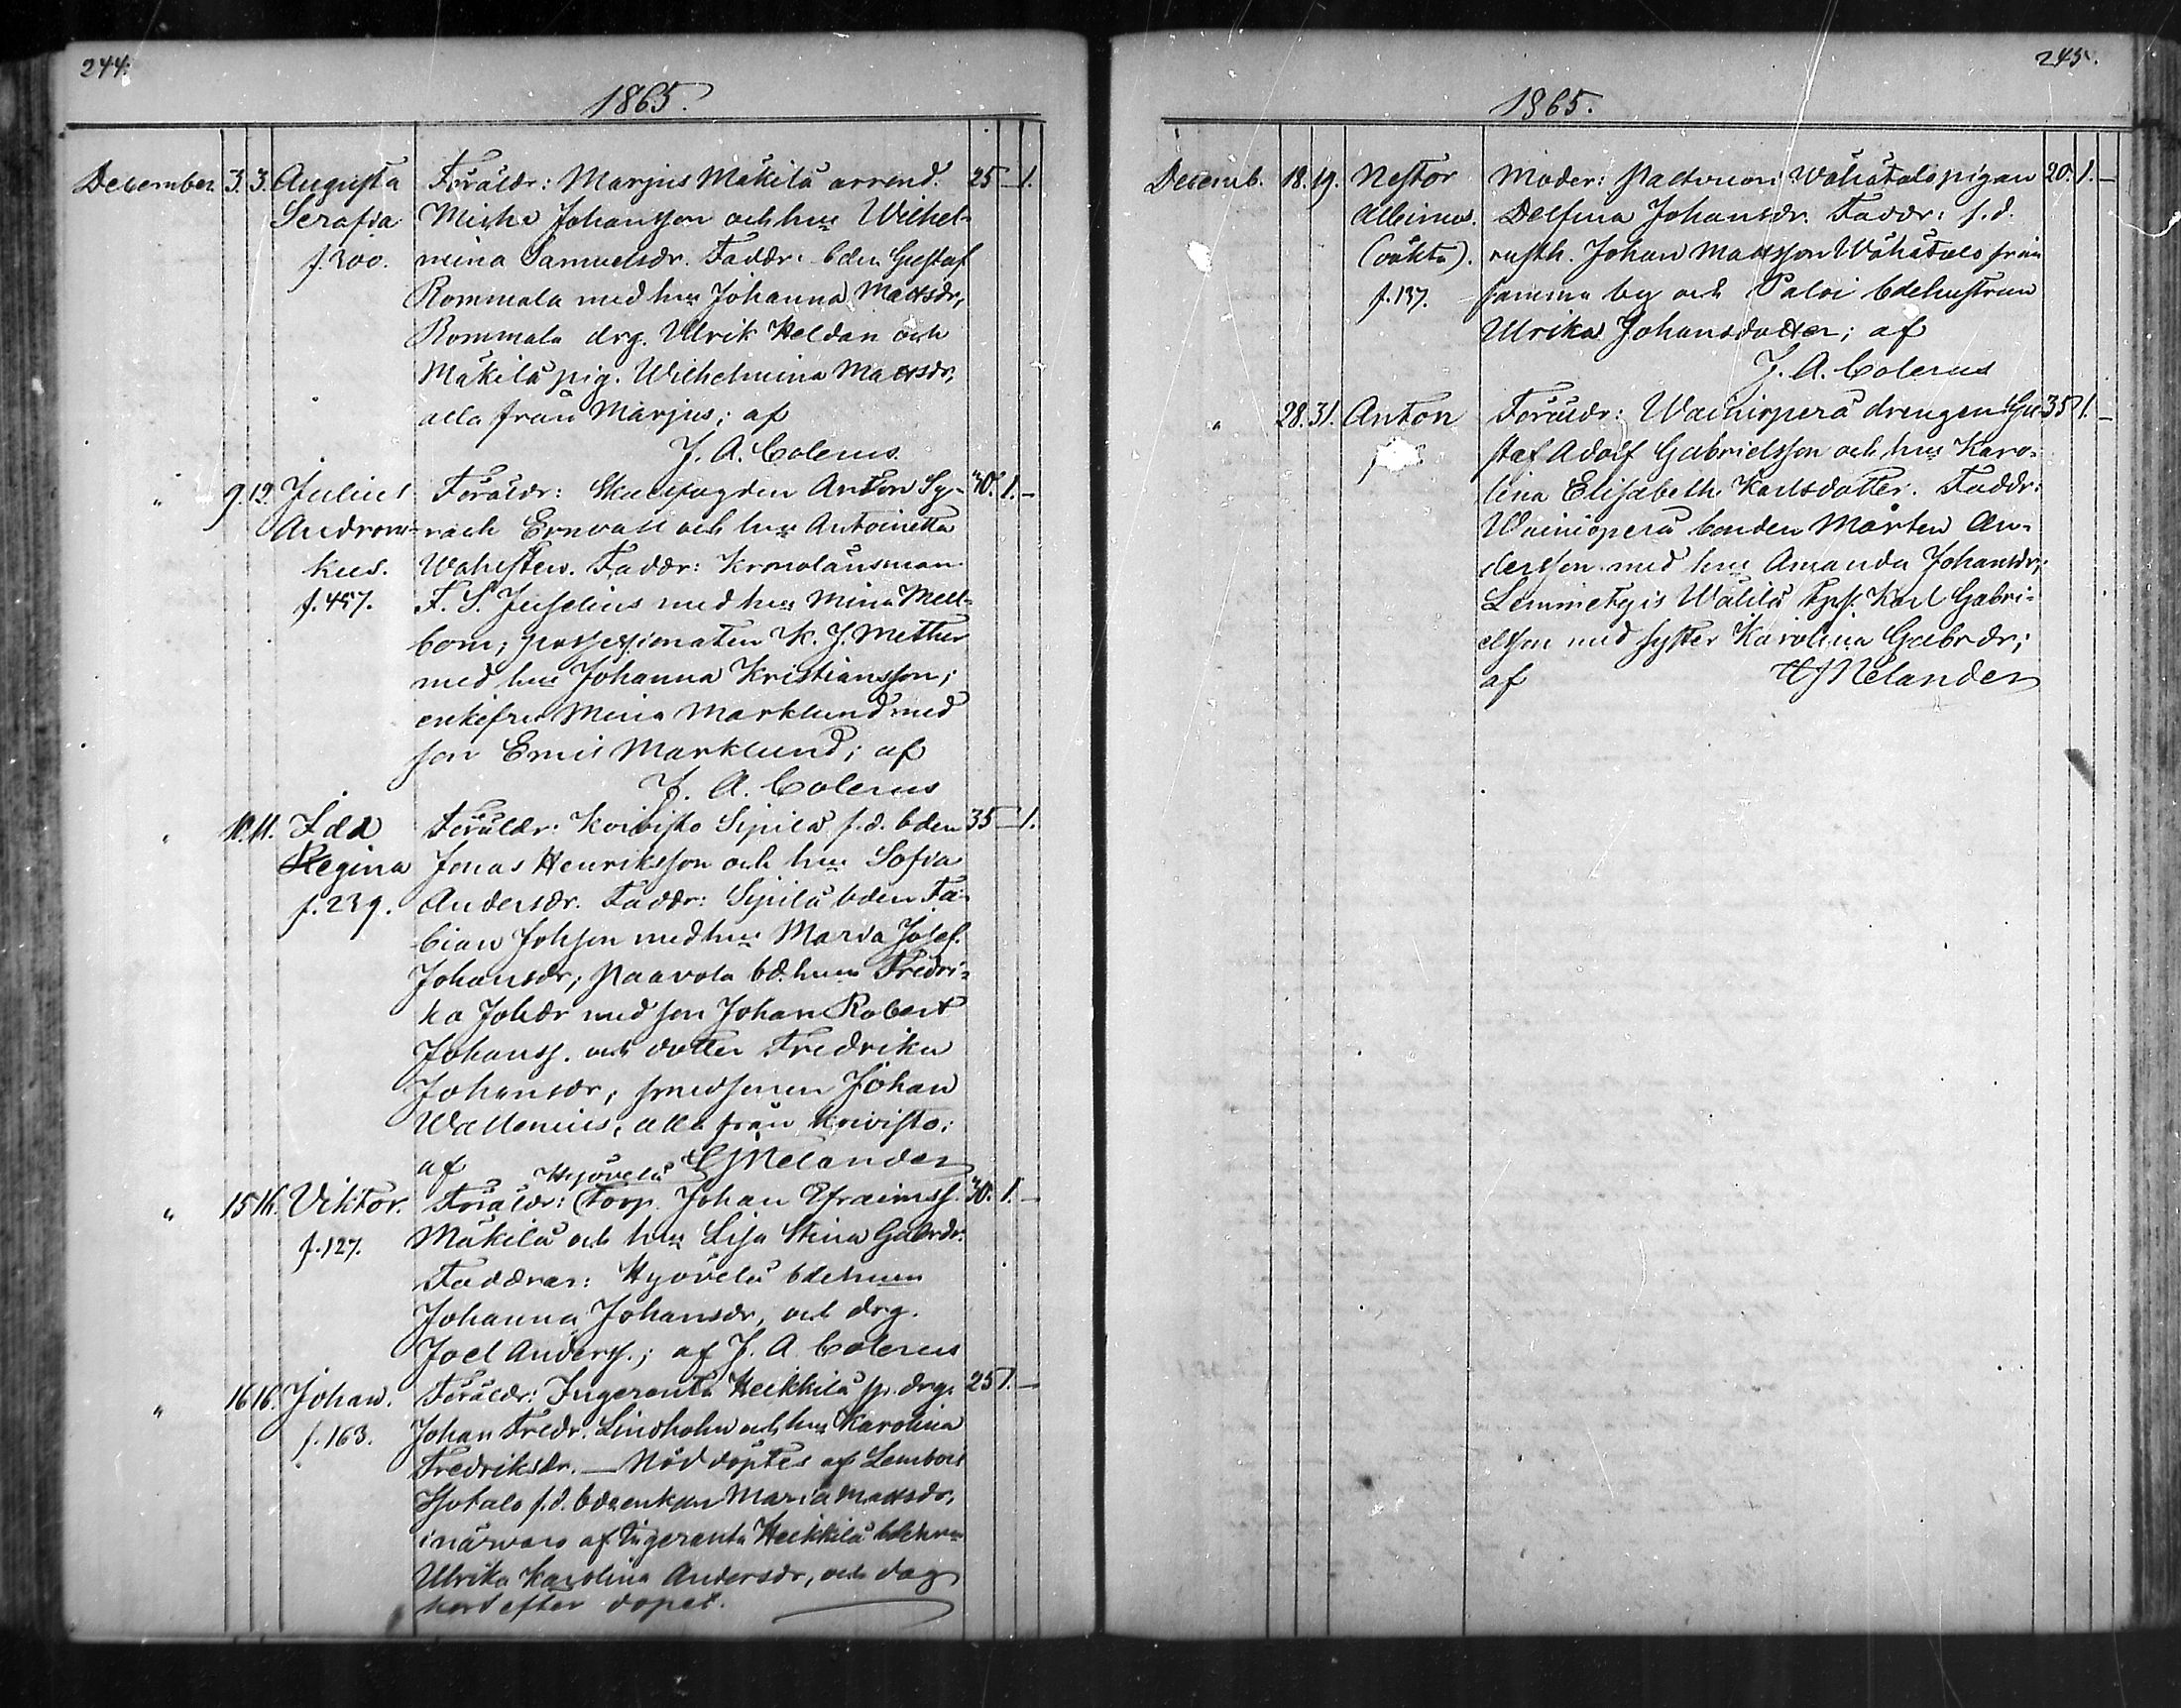 244.
1865.
December. 3. 3. Augusta Föräldr: Marjus Mäkilä arrend. 25 – 1.
Serafia Miche Johansson och hus Wilhel-
f. 200. mina Samuelsdr. Faddr: bden Gustaf
Rommala med hus Johanna Mattsdr,
Rommala drg. Ulrik Heldan och
Mäkilä pig. Wilhelmina Mattsdr,
alla från Marjus; af
J. A. Colerus
" 9. 12. Julius Föräldr: Anton Sy- 40. 1. –
Androni- rach Ernvall och hus Antoinetta
kus. Wahlsten. Faddr: Kronolänsman
f. 457. F. S. Juselius med hus Mina Mell-
bom; possessionaten K. J. Mether
med hus Johanna Kristiansson;
enkefru Mina Marklund med
son Emil Marklund; af
J. A. Colerus
" 10. 11. Ida Föräldr: Koivisto Sipilä f.d. bden 35 – 1.
Regina Jonas Henriksson och hus Sofia
f. 239. Andersdr. Faddr: Sipilä bden Fa-
bian Johsson med hus Maria Josef.
Johansdr; Paavola bdehun Fredri-
ka Johdr med son Johan Robert
Johanss. och dotter Fredrika
Johansdr; smedsonen Johan
Wallenius, alla från Koivisto;
af GJMelander
Hyövelä
" 15 16. Viktor. Föräldr: Torp. Johan Efraimss. 30. 1. –
f. 127. Mäkilä och hus Lisa Stina Gabrdr.
Faddrar: Hyövelä bdehun
Johanna Johansdr, och drg.
Joel Anderss.; af J. A. Colerus
" 16 16. Johan. Föräldr: Ingeranta Heikkilä sp. drg. 25 1. –
f. 163. Johan Fredr. Lindholm och hus Karolina
Fredriksdr. — Nöddöptes af Lembois
f.d. bdeenkan Maria Mattsdr,
i närvaro af Ingeranta Heikkilä bdehun
Ulrika Karolina Andersdr, och dog
kort efter dopet.
245.
1865.
Decemb. 18. 19. Nestor Moder: Wähätalo pigan 20. 1. –
Albinus. Delfina Johansdr. Faddr: f.d.
(oäkta). rusth. Johan Mattsson Wähätalo från
f. 137. samma by och Paloi bdehustrun
Ulrika Johansdotter; af
J. A. Colerus
" 28. 31. Anton Föräldr: Wäiniöperä drengen Gu- 35 1. –
staf Adolf Gabrielsson och hus Karo-
lina Elisabeth Karlsdotter. Faddr:
Wäiniöperä bonden Mårten An-
dersson med hus Amanda Johansdr;
Lemmetyis Wälilä Karl Gabri-
elsson med syster Karolina Gabrdr;
af GJMelander